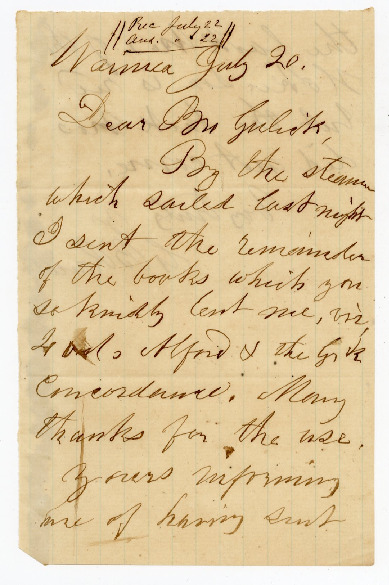 Rec July 22
Ans. " 22
Waimea July 20.
Dear Bro Gulick,
By the steamer
which sailed last night
I sent the remainder
of the books which you
so kindly lent me, viz,
4 vols Alford & the Grk
Concordance. Many
thanks for the use.
Yours informing
me of having sent